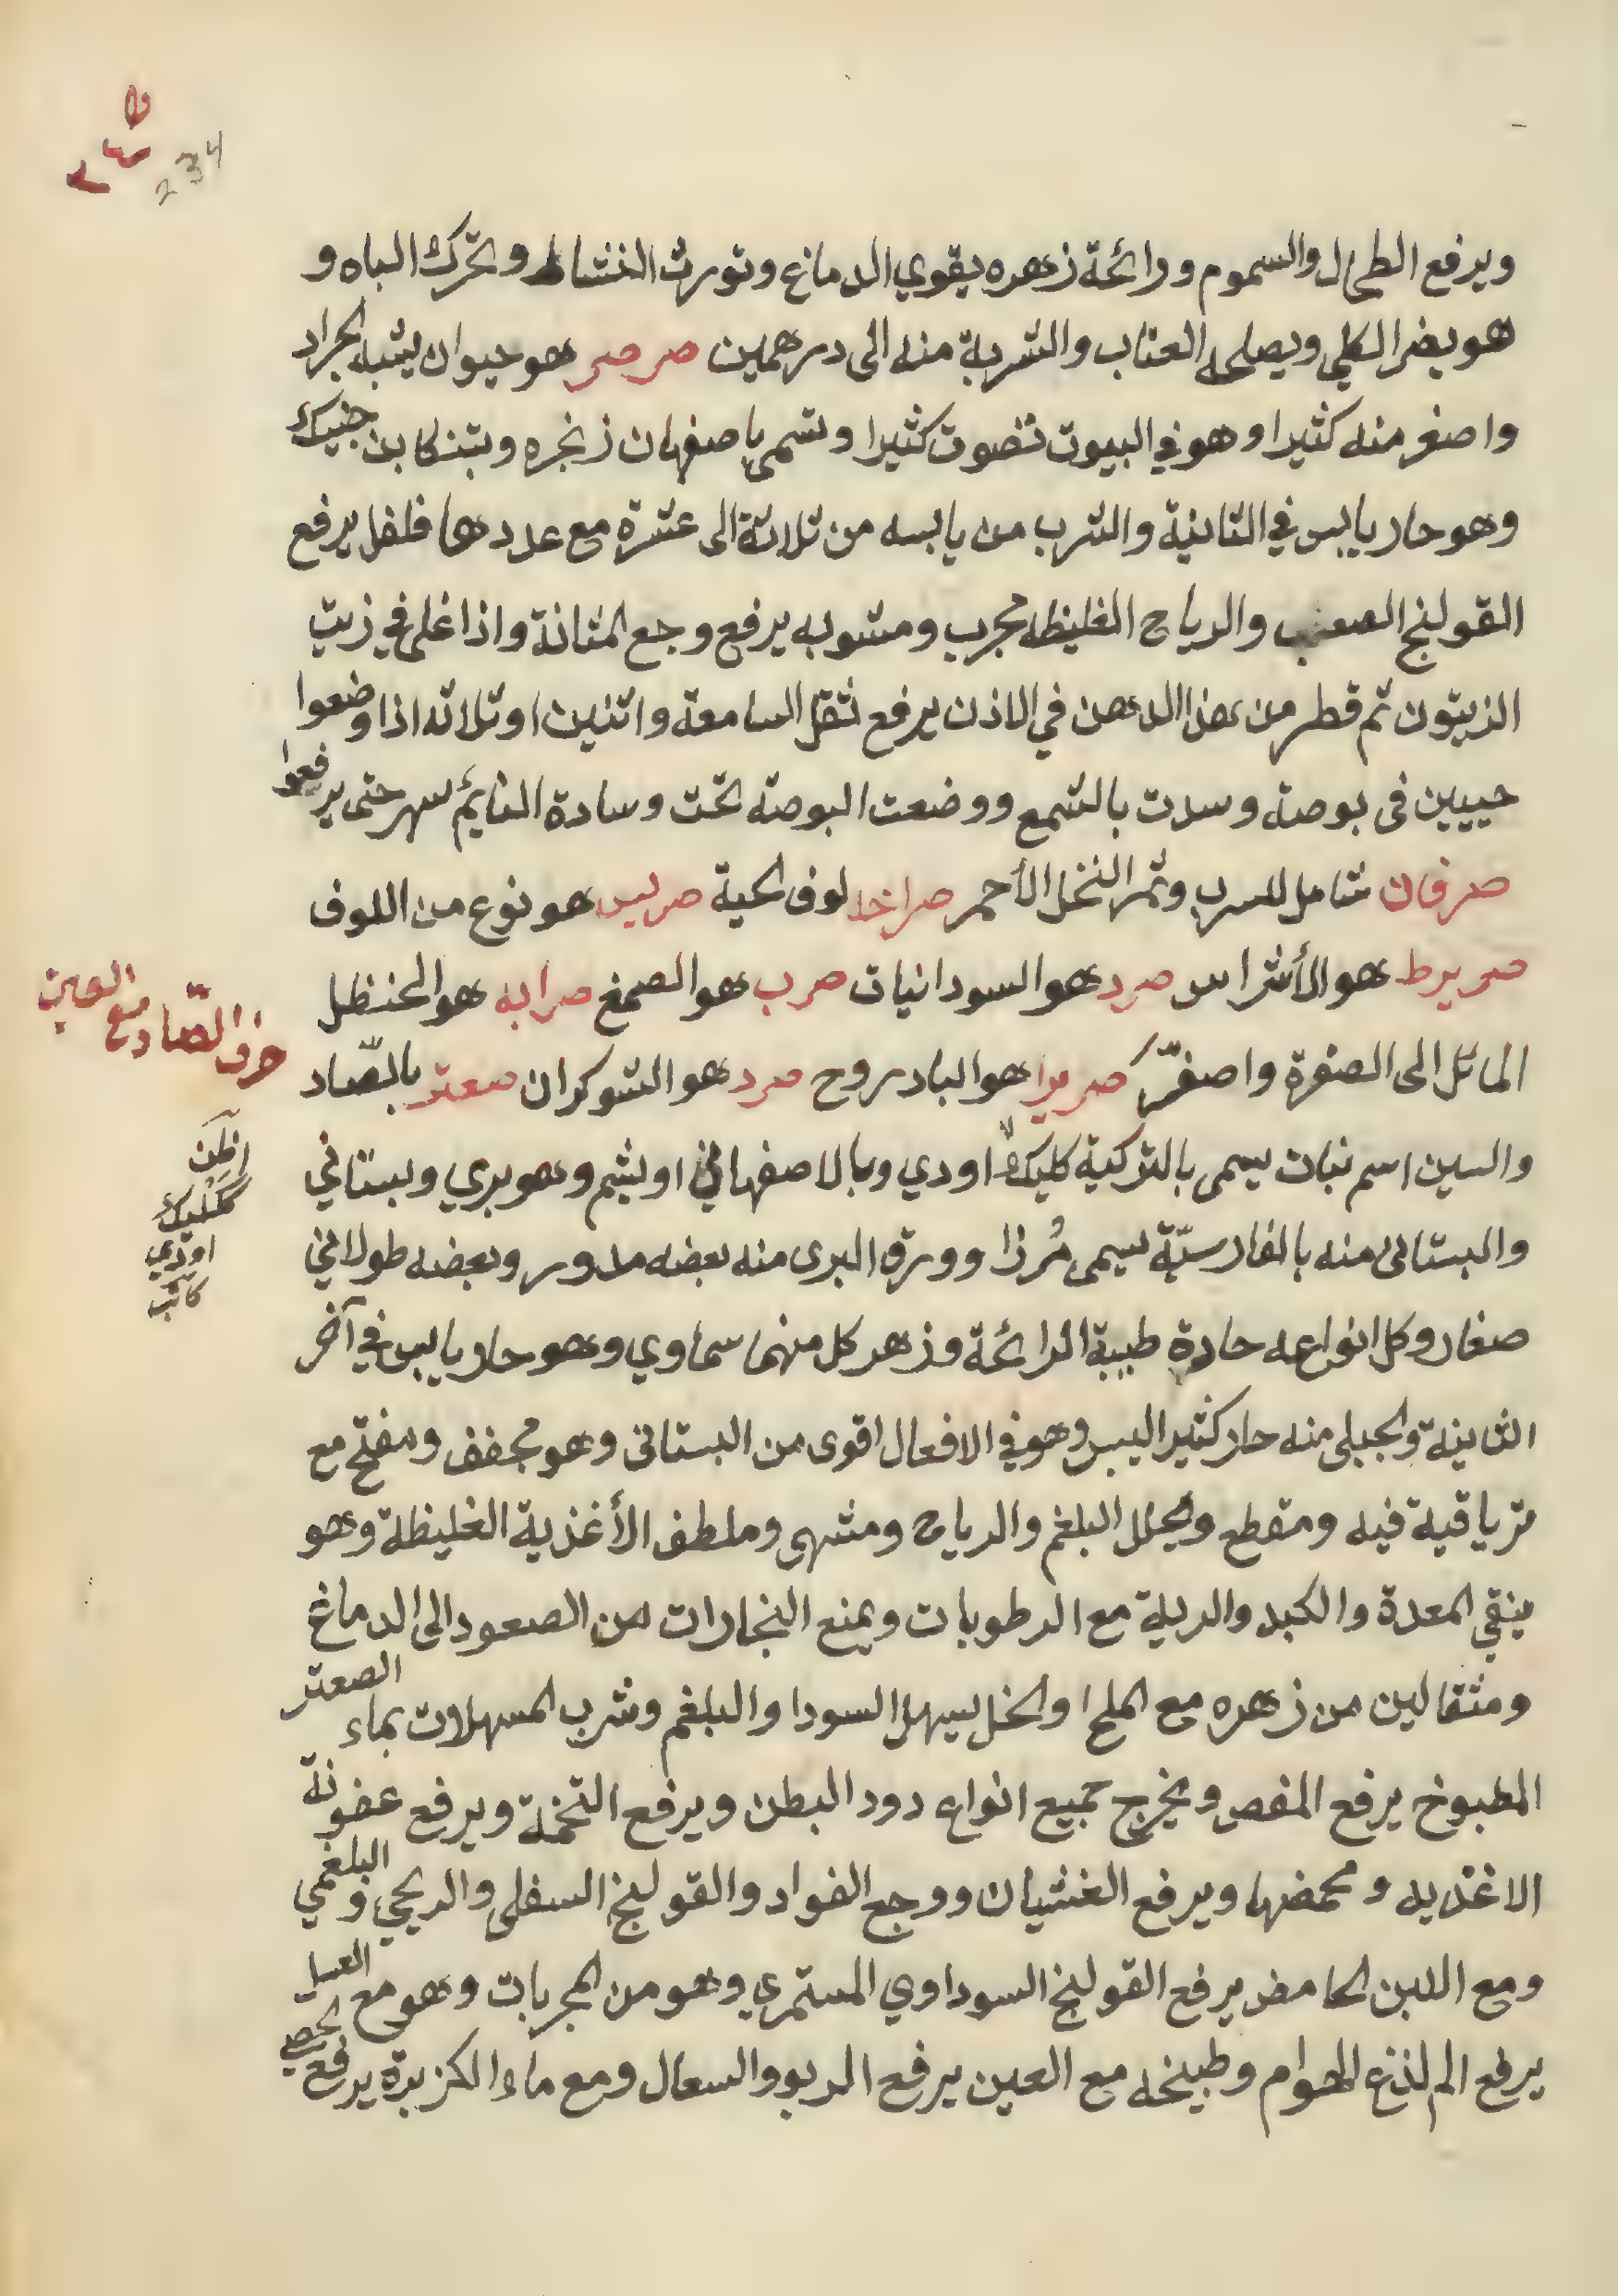 ٢٣٤
234
ويرفع الطحال والسموم ورائحة زهره يقوي الدماغ وتورث النشاط وتحرك الباه و
هو يضر الكلى ويصلحه العناب والشربة منه الى درهمين صرصر هو حيوان يشبه الجراد
واصغر منه كثيرا وهو في البيوت تصوت كثيرا وتسمى باصفهان زنجره وبتنكابن جنيك
وهو حار يابس في الثانية والشرب من يابسه من ثلاثة الى عشرة مع عددها فلفل يرفع
القولنج الصعب والرياح الغليظه مجرب ومشويه يرفع وجع المثانة واذا غلى في زيت
الزيتون ثم قطر من هذا الدهن في الاذن يرفع ثقل السامعة واثنين او ثلاثه اذا وضعوا
حيين في بوصة وسدت بالشمع ووضعت البوصة تحت وسادة النايم سهر حتى يرفعوا
صرفان شامل للسرب وتمر النخل الأحمر صراخد لوف الحية صريس هو نوع من اللوف
صريرط هو الأشراس صرد هو السودانيات صرب هو الصمغ صرابه هو الحنظل
المائل الى الصفرة واصفرّ صريرا هو البادروح صرد هو الشوكران صعتر بالصّاد
حرف الصّاد مع العين
والسين اسم نبات يسمى بالتركية كليك اودي وبالاصفهاني اويشم وهو بري وبستاني
اظن كليك اودي كاتب
والبستاني منه بالفارسيّة يسمى مُرزا وورق البرى منه بعضه مدور وبعضه طولاني
صغار وكل انواعه حادة طيبة الرائحة وزهر كل منهما سماوي وهو حار يابس في آخر
الثانية والجبلى منه حار كثير اليبس وهو في الافعال اقوى من البستانى وهو مجفف ومفتح مع
ترياقية فيه ومقطع ويحلل البلغم والرياح ومشهى وملطف الأغذية الغليظة وهو
ينقي المعدة والكبد والرية مع الرطوبات ويمنع البخارات من الصعود الى الدماغ
ومثقالين من زهره مع الملح او الخل يسهل السودا والبلغم وشرب المسهلات بماء الصعتر
المطبوخ يرفع المغص ويخرج جميع انواع دود البطن ويرفع التخمة ويرفع عفونة
الاغذيه ومحمضها ويرفع الغثيان ووجع الفواد والقولنج السفلى والريحي والبلغمي
ومع اللبن الحامض يرفع القولنج السوداوي المستمري وهو من المجربات وهو مع العسل
يرفع الم لذع الهوام وطبيخه مع العين يرفع الربو والسعال ومع ماء الكزبرة يرفع الحصي